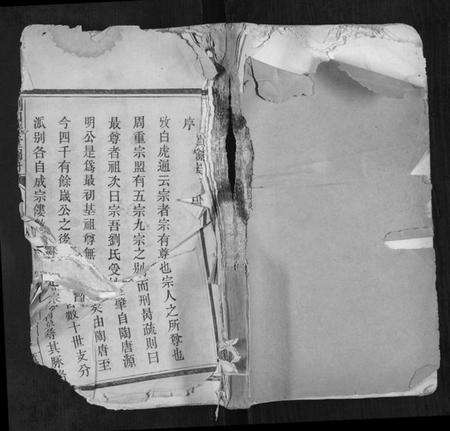 序
攷白虎通云宗者宗有尊也宗人之所尊也
周重宗盟有五宗九宗之别而刑昺疏則曰
最尊者祖次日宗吾劉氏受 肇自陶唐源
明公是爲最初基祖尊無 矣由陶唐至
今四千有餘歲公之後 數十世支分
派别各自成宗 其脉